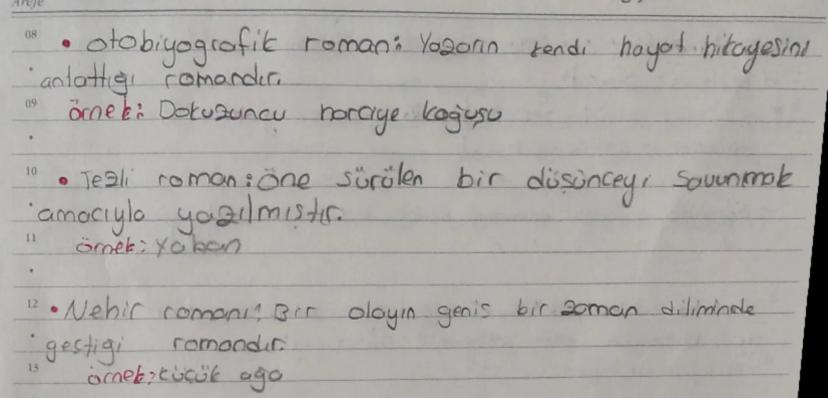 Ajeje
08 • Otobiyografik roman: Yazarın kendi hayat hikayesini
anlattığı romandır.
09 örnek: Dokuzuncu hariciye koğuşu
10 • Tezli roman: öne sürülen bir düşünceyi savunmak
amacıyla yazılmıştır.
11 örnek: Yaban
12 • Nehir romanı: Bir olayın geniş bir zaman diliminde
geştiği romandır.
13 örnek: küçük ağa